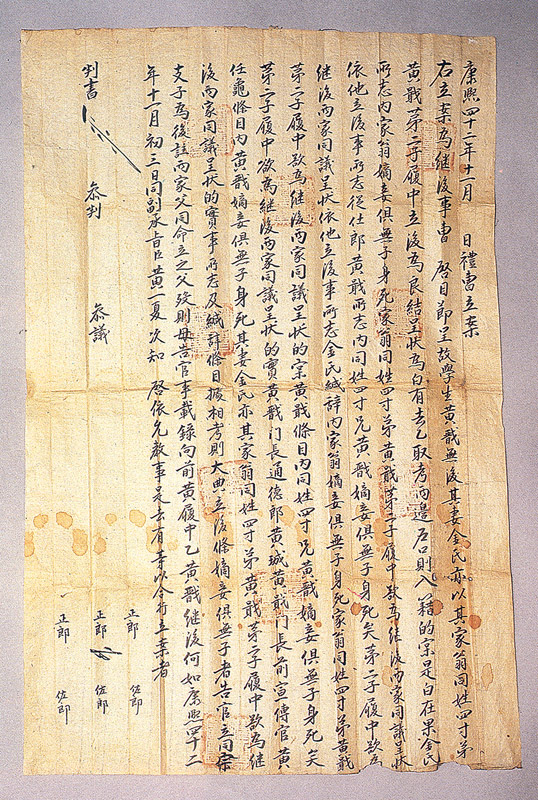 康熙四十二年十一月　日禮曹立案
右立案爲繼後事曹　啓目節呈故學生黃戩無後其妻金氏亦以其家翁同姓四寸弟
黃戭第二子履中立後爲良結呈狀爲白有去乙取考內邊戶口則入籍的宗是白在果金氏
所志內家翁嫡妾俱無子身死家翁同姓四寸弟黃戭第二子履中欲爲繼後兩家同議呈狀
依他立後事所志從仕郎黃戭所志內同姓四寸兄黃戩嫡妾俱無子身死矣第二子履中欲爲
継後兩家同議呈狀依他立後事所志金氏緘辭內家翁嫡妾俱無子身死家翁同姓四寸弟黃戭
第二子履中欲爲継後兩家同議呈狀的宗黃戭條目內同姓四寸兄黃戩嫡妾俱無子身死矣
第二子履中欲爲継後兩家同議呈狀的實黃戩門長通德郎黃珹黃戭門長前宣傳官黃
任龜條目內黃戩嫡妾俱無子身死其妻金氏亦其家翁同姓四寸弟黃戭第二子履中欲爲継
後兩家同議呈狀的實事所志及緘辭條目據相考則大典立後條嫡妾俱無子者告官立同宗
支子爲後註兩家父同命立之父歿則母告官事載錄向前黃履中乙黃戩継後何如康熙四十二
年十一月初三日同副承旨臣黃一夏次知　啓依允教事是去有等以合行立案者
判書
參判
參議
正郎
正郎
正郎
佐郎
佐郎
佐郎